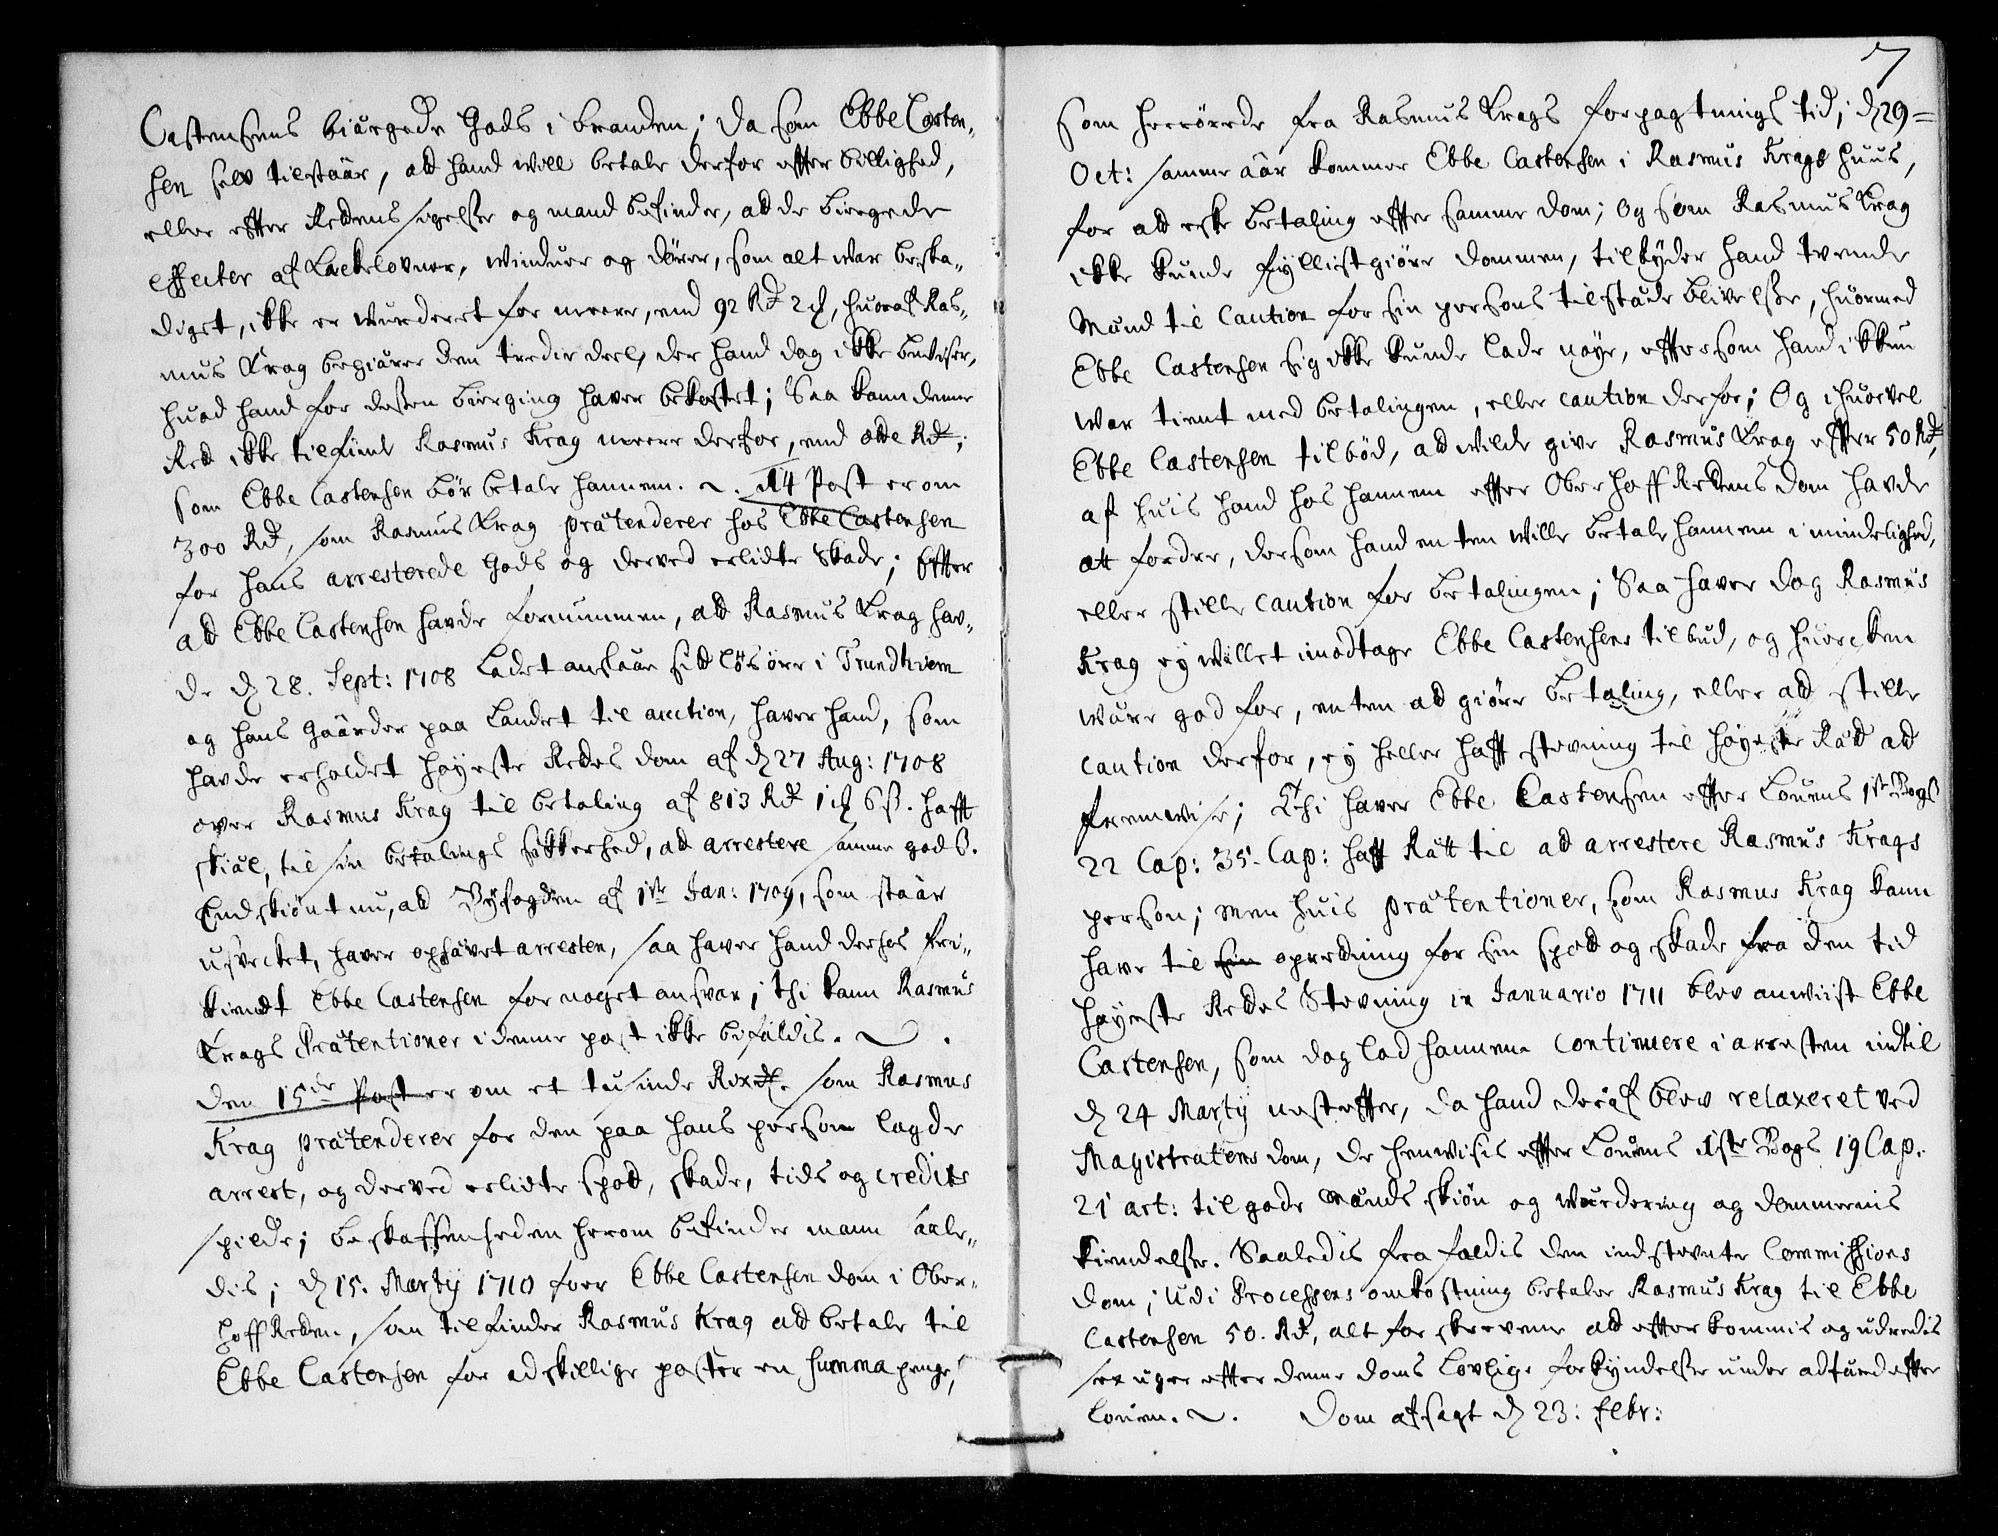 Castensens biärgede Gods i branden; da som Ebbe Casten-
sen selv tilstaar, ad hand will betale derfor effter billighed,
eller effter Rettens sigelse og mand befinder, ad de biergede
effecter af Kackelovner, winduer og dörer, som alt war beska-
diget, ikke er wurderet for meere, end 92 Rdr 2 ɱ, huoraf Ras-
mus Krag begiærer den tredie deel, der hand dog ikke beviser,
huad hand for dessen bierging haver bekostet; Saa kand denne
Red ikke tilfinde Rasmus Krag meere derfor, end otte Rdr,
som Ebbe Castensen bör betale hannem. 14 Post er om
300 Rdr, som Rasmus Krag prætenderer hos Ebbe Castensen
for hans arresterede Gods og derved erlidte Skade; Effter
ad Ebbe Castensen havde fornummen, ad Rasmus Krag hav-
de d 28. Sept: 1708 Ladet anslaae sid lösöre i Trundhiem
og hans Gaarder paa Landet til auction, haver hand, som
havde erholdet höyeste Redes dom af d 27 Aug: 1708
over Rasmus Krag til betaling af 813 Rdr 1 ɱ 6 ß. hafft
skiäl, til sin betalings sikkerhed, ad arrestere samme gods.
Endskiönt nu, ad Byfogden af 1ste Jan: 1709, som staar
usvecket, haver ophævet arresten, saa haver hand derhos fri-
kiendt Ebbe Castensen for noget ansvar; thi kann Rasmus
Krags Prætentioner i denne post ikke bifaldis.
Den 15de Post er om et tusinde Rixdr. som Rasmus
Krag prætenderer for den paa hans persom lagde
arrest, og derved erlidte spod, skade, tids og credits
spilde; beskaffenheden herom befinder mann saale-
dis; d 15. Martij 1710 faer Ebbe Castensen dom i Ober-
hoffReden, som tilfinder Rasmus Krag ad betale til
Ebbe Castensen for adskillige poster en summa penge,
7
som herrörede fra Rasmus Krags forpagtnings tid; d 29
Oct: samme aar kommer Ebbe Castensen i Rasmus Krags huus,
for ad eske betaling effter samme dom; Og som Rasmus Krag
ikke kunde fyllistgiöre dommen, tilbyder hand tvende
Mænd til Caution for sin persons tilstæde blivelse, huormed
Ebbe Castensen sig ikke kunde lade nöye, effterson hand ikkun
war tient med betalingen, eller caution derfor; Og ihuorvel
Ebbe Castensen tilböd, ad wilde give Rasmus Krag effter 50 Rdr,
af huis hand hos hannem effter OberhoffRedens dom havde
att fordre, dersom hand enten wille betale hannem i mindelighed,
eller stille caution for betalingen; Saa haver dog Rasmus
Krag ey willet imodtage Ebbe Castensens tilbud, og huercken
wære god for, enten ad giöre betaling, eller ad stille
caution derfor, ey heller hafft stevning til höyeste Ræd ad
fremwise; Thi haver Ebbe Castensen effter Louens 1ste Bogs
22 Cap: 35. Cap: hafft Rætt til ad arrestere Rasmus Krags
person; men huis prætentioner, som Rasmus Krag kann
have til sin opredning for sin spod og skade fra den tid
höyeste Redes Stevning in Januario 1711 blev anwiist Ebbe
Castensen, som dog lad hannem continuere i arresten indtil
d 24 Martij nesteffter, da hand deraf blev relaxeret ved
Magistratens dom, De henwises effter Louens 1ste Bogs 19 Cap.
21 art: til gode mænds skiön og wurdering og dommernis
kiendelse. Saaledis frafaldis den indstevnte Commissions
dom; Udi Processens omkostning betaler Rasmus Krag til Ebbe
Castensen 50. Rdr, alt forskrevene ad effterkommis og udredis
sex uger effter denne doms Lovlige forkyndelse under adfærd effter
Louen. Dom afsagt d 23: Febr: